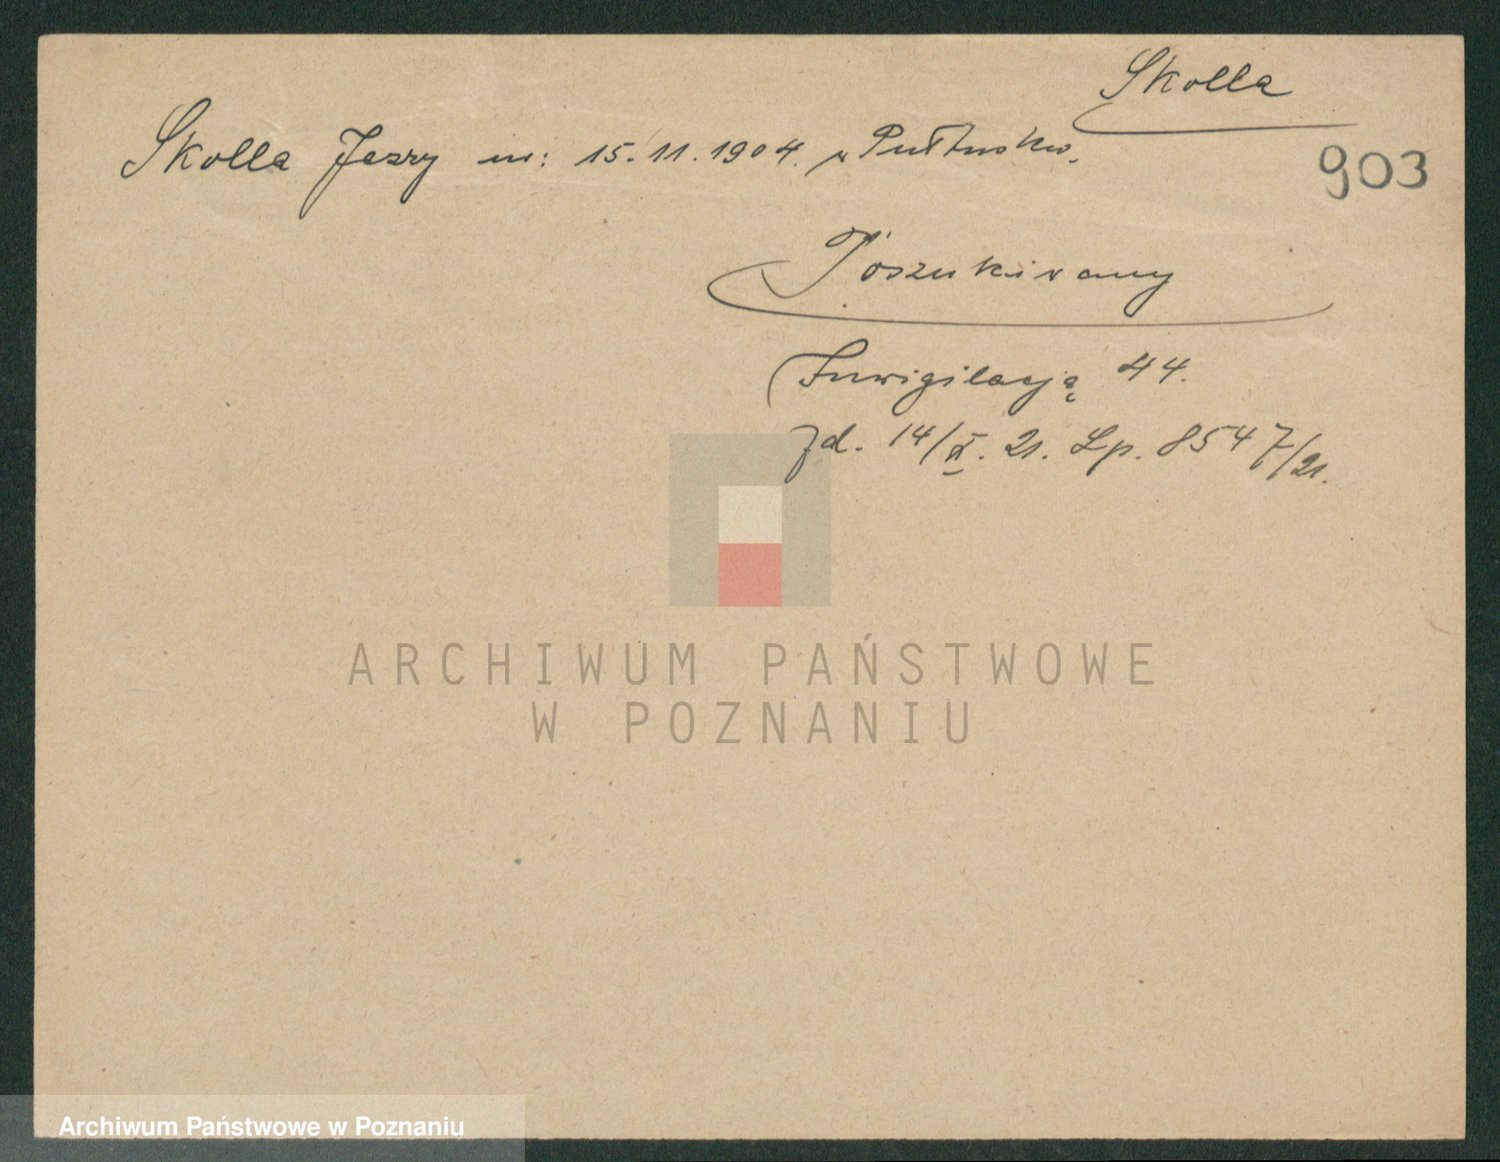 Skolla
Skolla Jerzy ur: 15.11.1904. w Pułtusku.
903
Poszukiwany
Inwigilacją 44.
zd. 14/X. 21. Lp. 8547/21.
ARCHIWUM PAŃSTWOWE
W POZNANIU
Archiwum Państwowe w Poznaniu